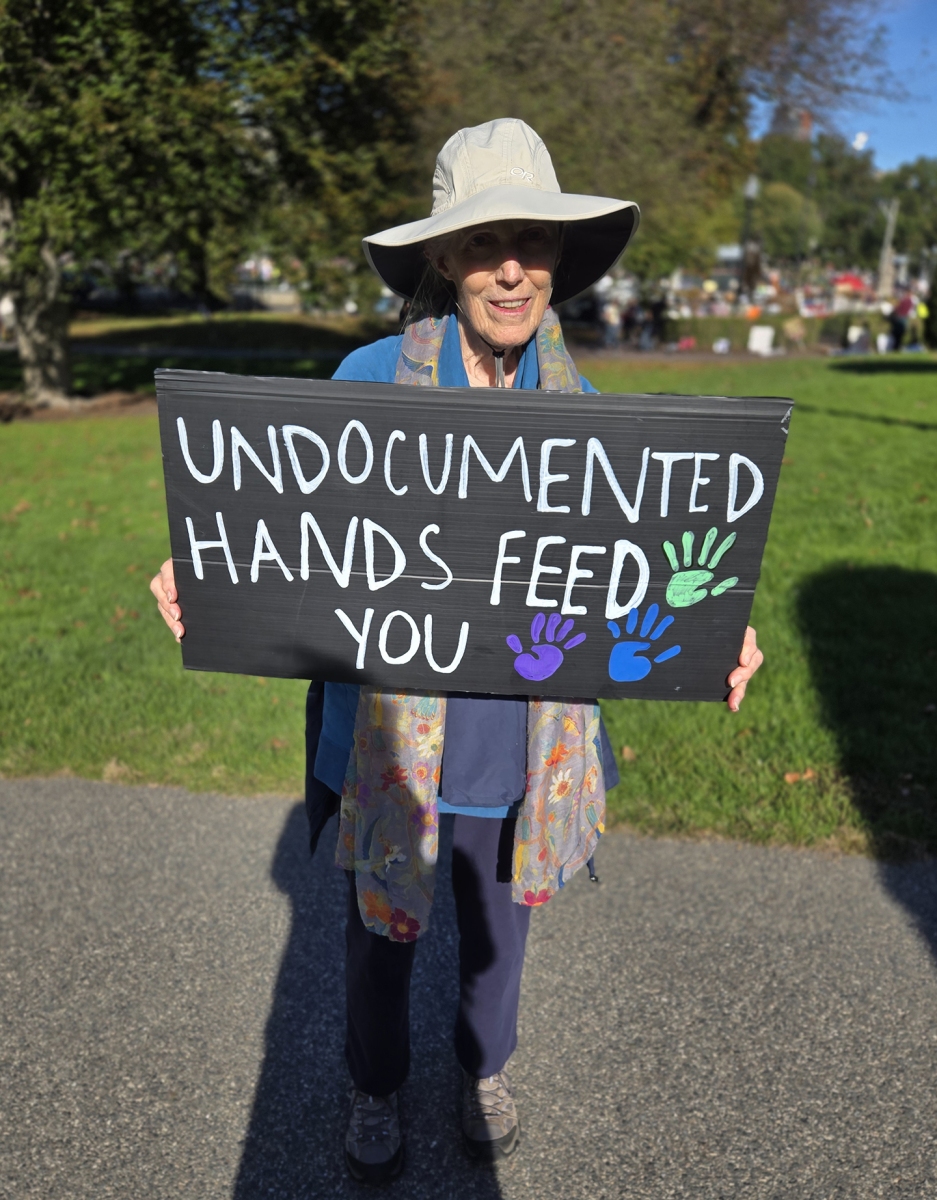 OR
UNDOCUMENTED
HANDS FEED
YOU